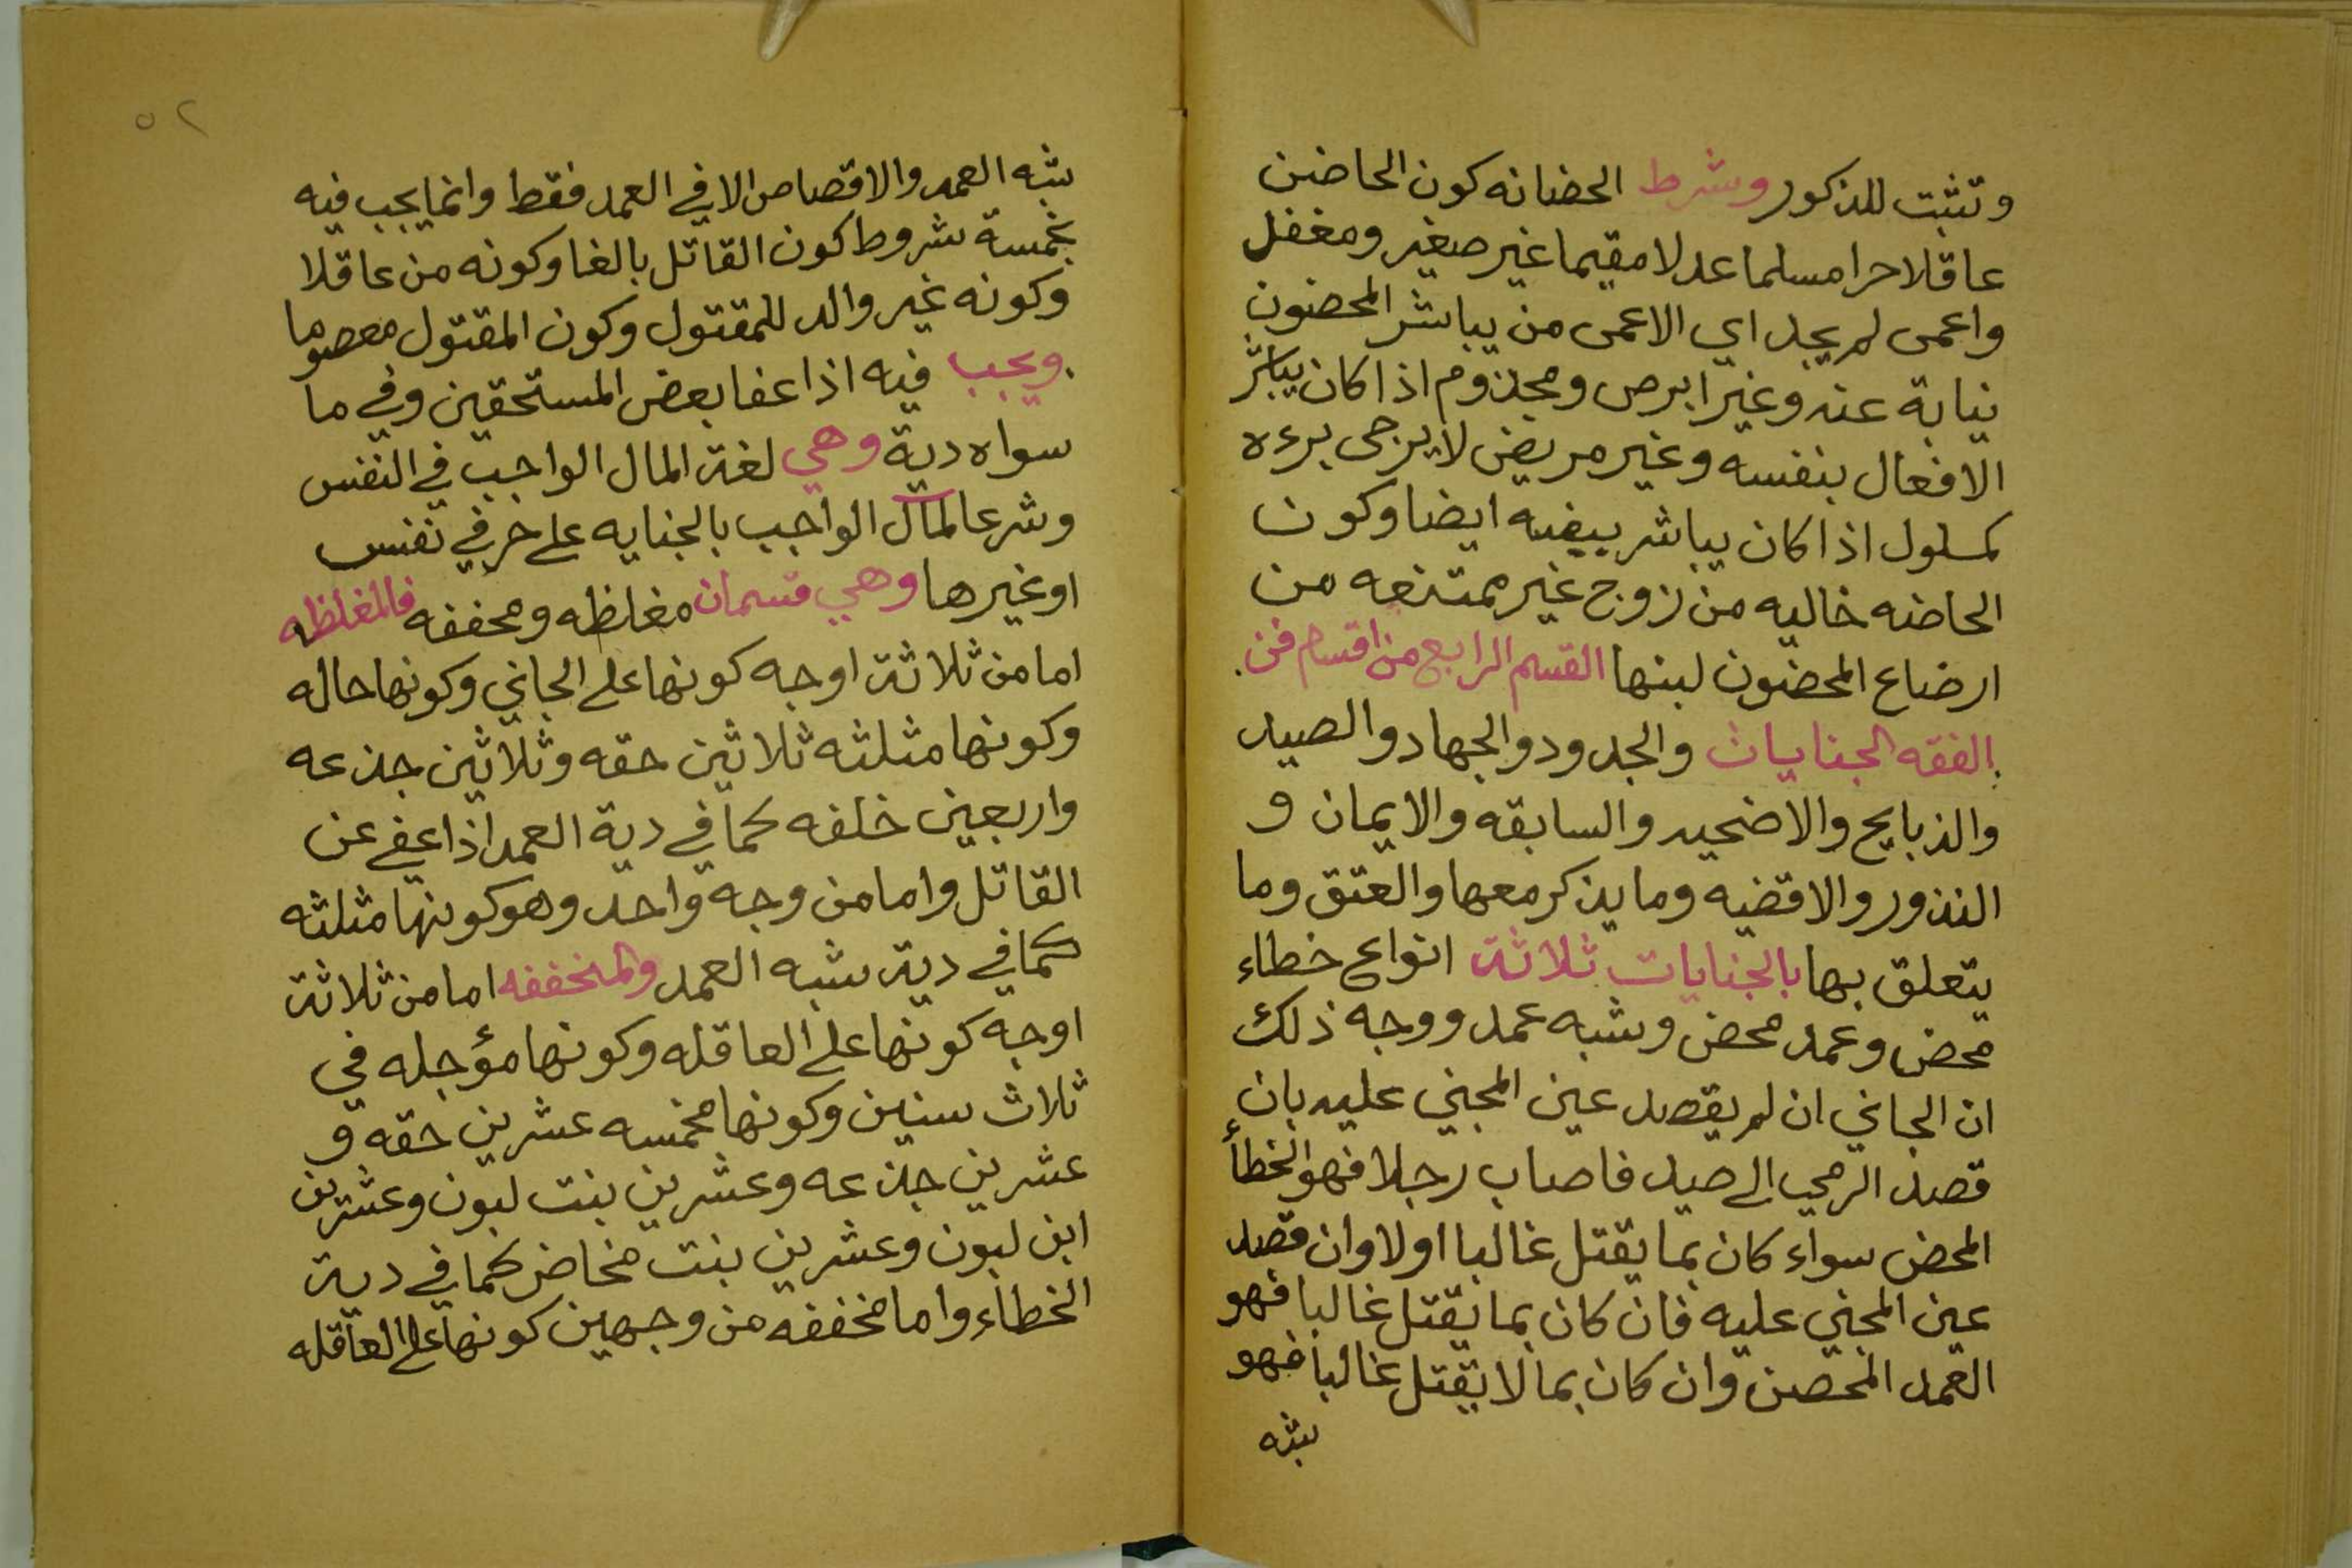 وتثبت للذكور وشرط الحضانه كون الحاضن
عاقلا حرا مسلما عدلا مقيما غير صغير ومغفل
واعمى لم يجد اي الاعمى من يباشر المحضون
نيابة عنه وغير ابرص ومجذوم اذا كان يباشر
الافعال بنفسه وغير مريض لا يرجى برءه
كمسلول اذا كان يباشر بيفسه ايضا وكون
الحاضنه خاليه من زوج غير ممتنعه من
ارضاع المحضون لبنها القسم الرابع من اقسام فن
الفقه الجنايات والحدود والجهاد والصيد
والذبايح والاضحيه والسابقه والايمان و
النذور والاقضيه وما يذكر معها والعتق وما
يتعلق بها بالجنايات ثلاثة انواع خطاء
محض وعمد محض وشبه عمد ووجه ذلك
ان الجاني ان لم يقصد عين المجني عليه بان
قصد الرمي الى صيد فاصاب رجلا فهو الخطأ
المحض سواء كان بما يقتل غالبا اولا وان قصد
عين المجني عليه فان كان بما يقتل غالبا فهو
العمد المحصن وان كان بما لا يقتل غالبا فهو
شبه
٥٢
شبه العمد والاقصاص الا في العمد فقط وانما يجب فيه
بخمسة شروط كون القاتل بالغا وكونه من عاقلا
وكونه غير والد للمقتول وكون المقتول معصوما
ويجب فيه اذا عفا بعض المستحقين وفي ما
سواه دية وهي لغة المال الواجب في النفس
وشرعا المال الواجب بالجنايه على حر في نفس
او غيرها وهي قسمان مغلظه ومخففه فالمغلظه
اما من ثلاثة اوجه كونها على الجاني وكونها حاله
وكونها مثلثه ثلاثين حقه وثلاثين جذعه
واربعين خلفه كما في دية العمد اذا عفي عن
القاتل واما من وجه واحد وهو كونها مثلثه
كما في دية شبه العمد والمخففه اما من ثلاثة
اوجه كونها على العاقله وكونها مؤجله في
ثلاث سنين وكونها مخمسه عشرين حقه و
عشرين جذعه وعشرين بنت لبون وعشرين
ابن لبون وعشرين بنت مخاض كما في دية
الخطاء واما مخففه من وجهين كونها على العاقله